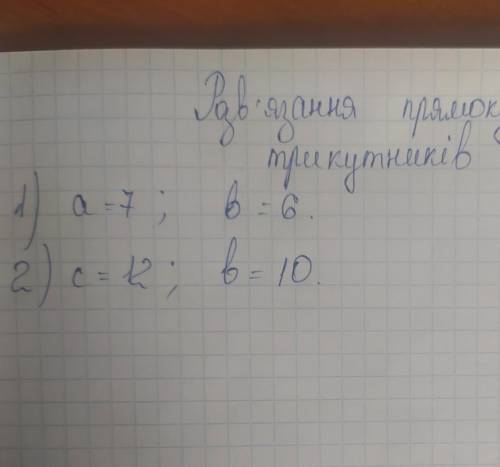 Розв'язання прямок
трикутників
1) a = 7 ; в = 6.
2) c = 12 ; в = 10.